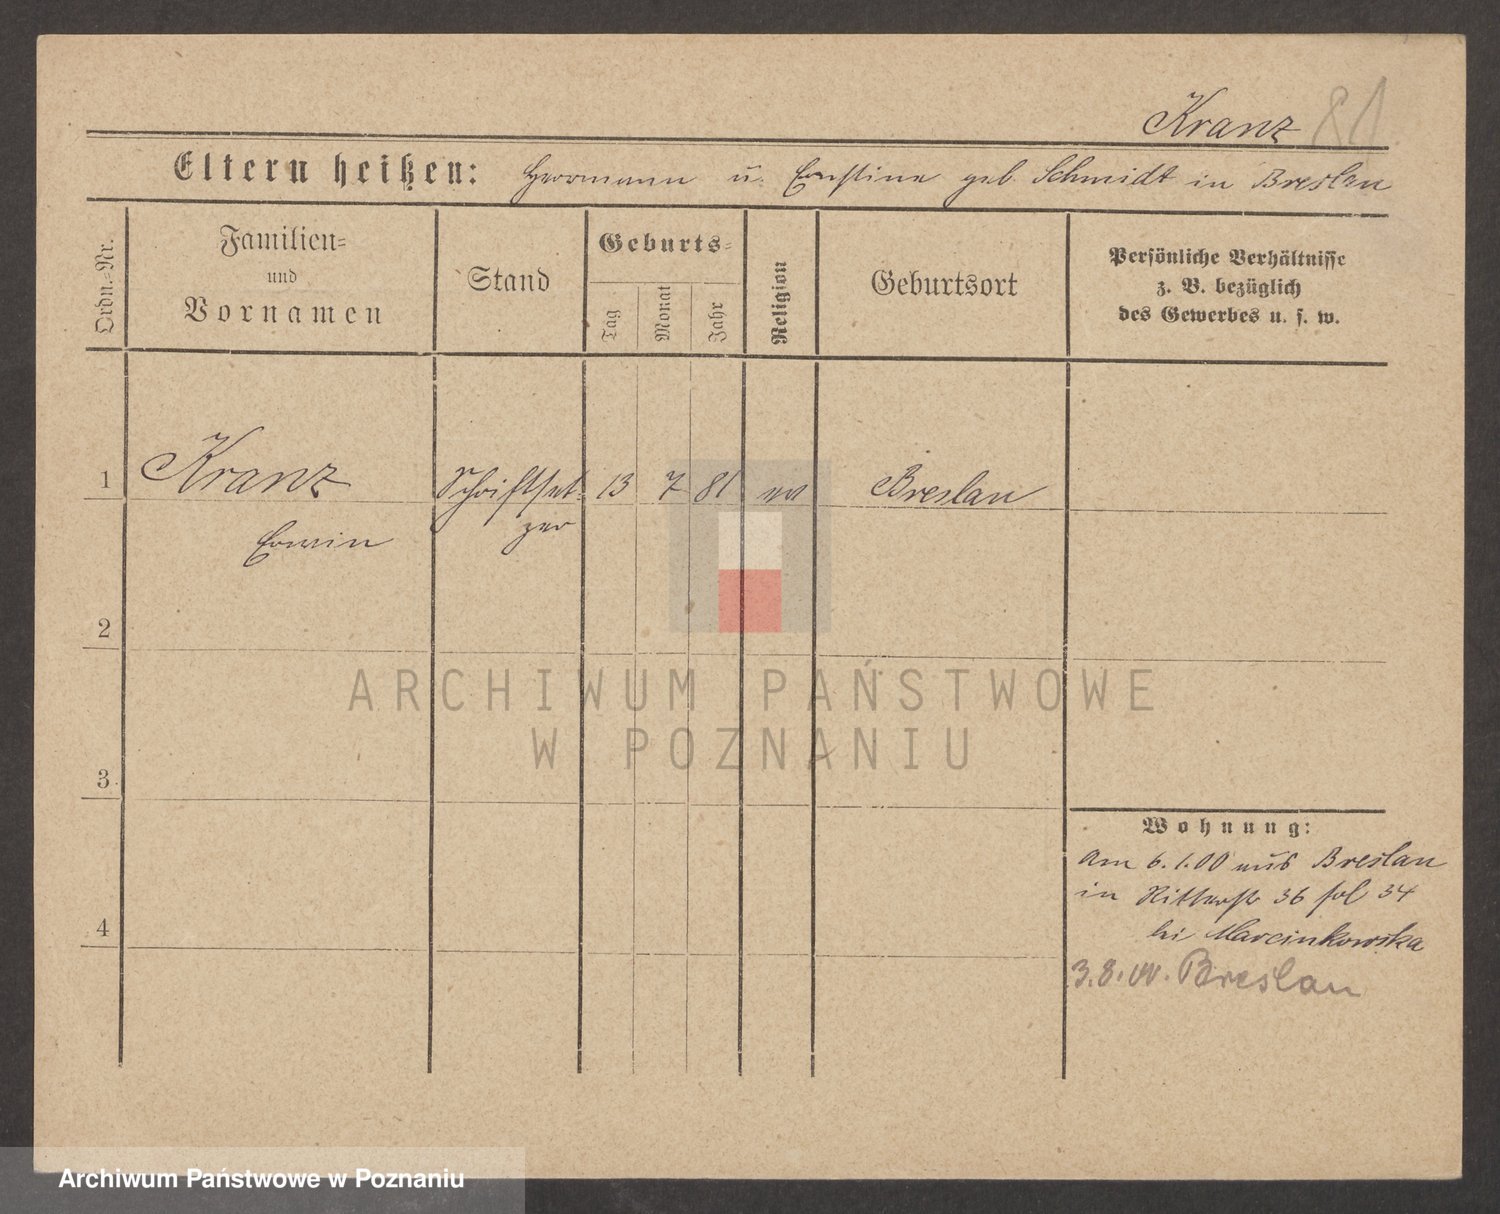 Kranz 81
Eltern heißen: Herrmann u. Ernstine geb. Schmidt in Breslau
Ordn.-Nr.
Familien-
und
Vornamen
Stand
Geburts-
Tag
Monat
Jahr
Religion
Geburtsort
Persönliche Verhältnisse
z. B. bezüglich
des Gewerbes u. s. w.
1 Kranz Schriftset- 13 7 81 ev Breslau
Erwin zer
2
3
4
Wohnung:
Am 6.1.00 aus Breslau
in Ritterstr 36 fol 34
bei Marcinkowska
3.8.00. Breslau
ARCHIWUM PAŃSTWOWE
W POZNANIU
Archiwum Państwowe w Poznaniu